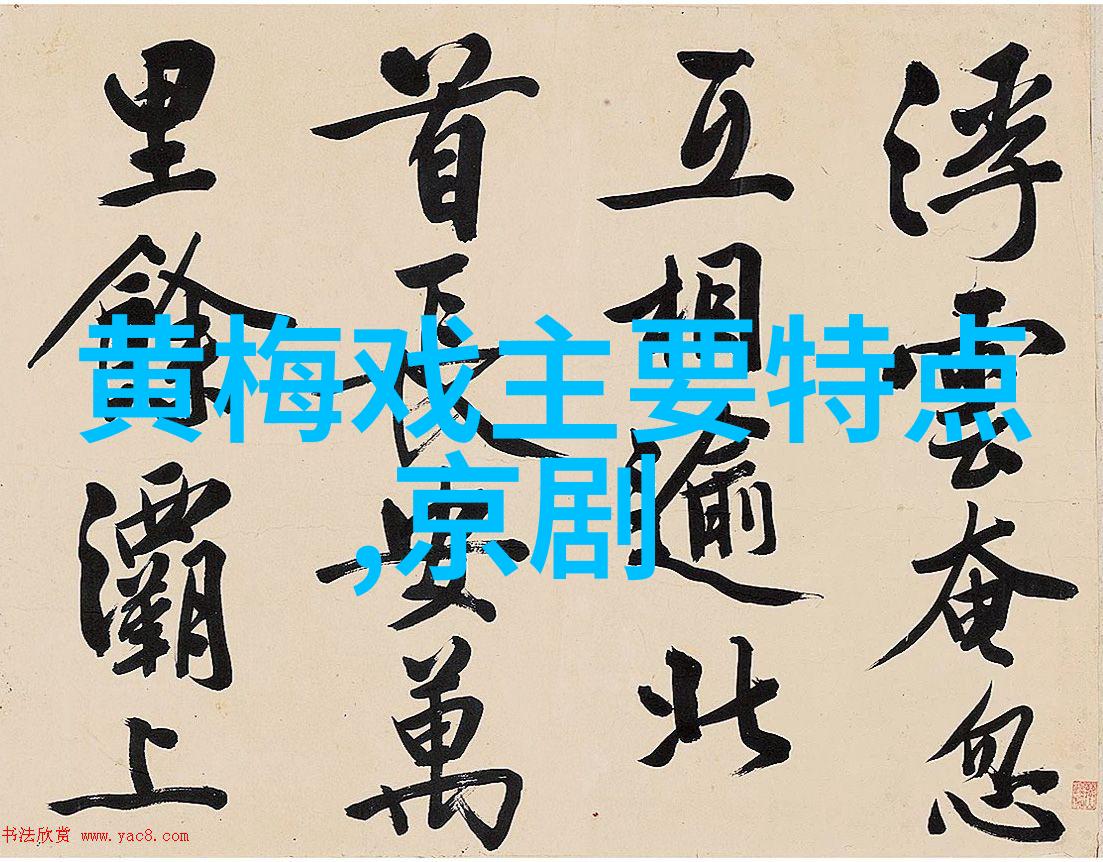 黄梅戏主要特点
,京剧
浮雲奄忽
互相逾北
首長安萬
里餘灞上
书法欣赏 www.yac8.com